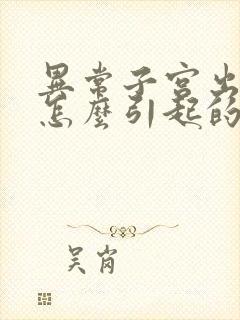 異常子宮出
怎麼引起的
吴岗